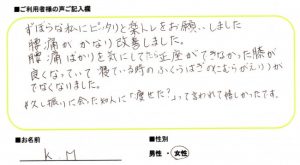 ■ご利用者様の声ご記入欄
ずぼらな私にピッタリと楽トレをお願いしました
腰痛がかなり改善しました。
腰痛ばかりを気にしてたら正座ができなかった膝が
良くなっていて寝ている時のふくらはぎの(こむらがえり)が
でなくなりました。
久し振りに会った知人に「痩せた?」って言われて嬉しかったです。
■お名前
K.M
■性別
男性・女性